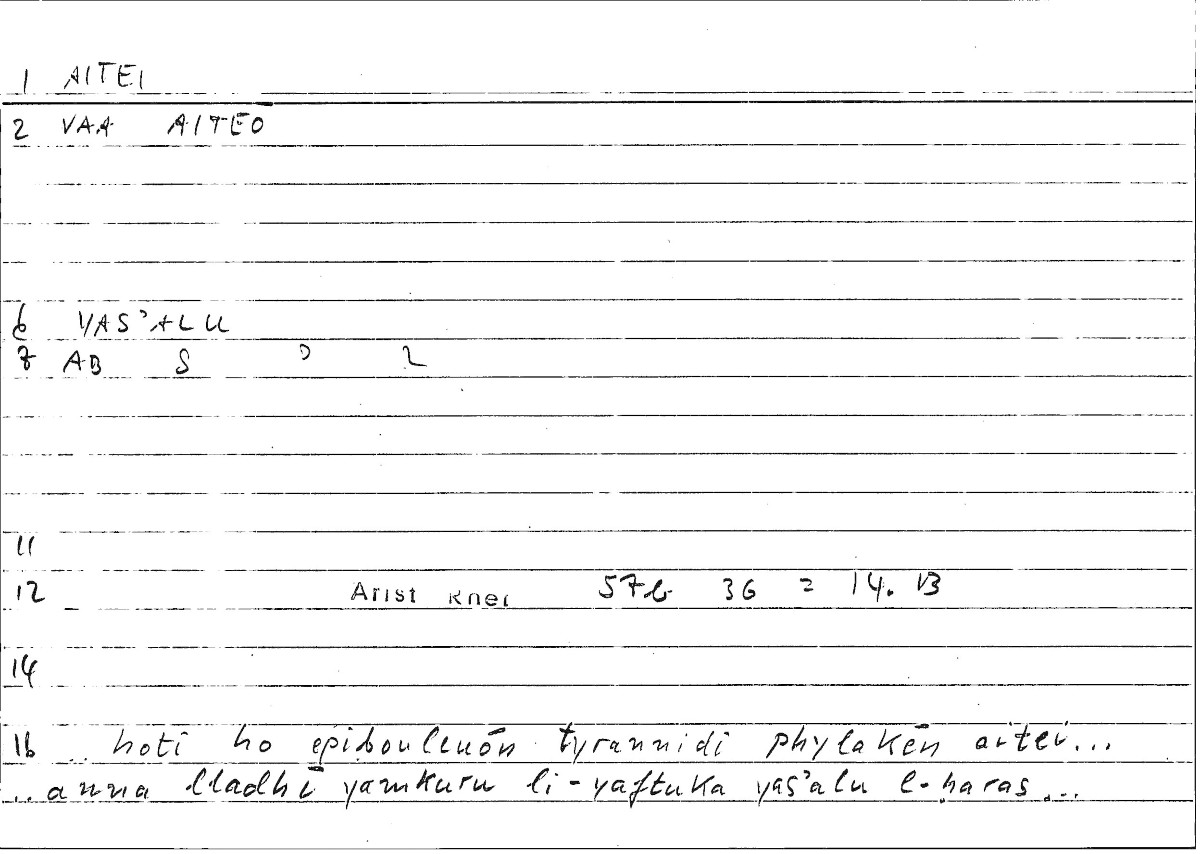 1 AITEI
2 VAA AITEO
6 YAS'ALU
7 AB S ' L
11
12 Arist Rhet 57b 36 = 14. 13
14
16 .. hoti ho epibouleuōn tyrannidi phylakēn aitei...
...anna lladhī yamkuru li-yaftuka yas'alu l-ḥaras...